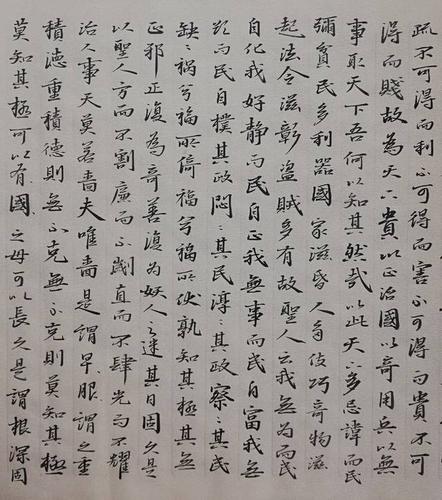 疏不可得而利不可得而害不可得而貴不可
得而賤故為天下貴以正治國以奇用兵以無
事取天下吾何以知其然哉以此天下多忌諱而民
彌貧民多利器國家滋昏人多伎巧奇物滋
起法令滋彰盜賊多有故聖人云我無為而民
自化我好靜而民自正我無事而民自富我無
欲而民自樸其政悶〻其民淳〻其政察〻其民
缺〻禍兮福所倚福兮禍所伏孰知其極其無
正邪正復為奇善復為妖人之迷其日固久是
以聖人方而不割廉而不劌直而不肆光而不耀
治人事天莫若嗇夫唯嗇是謂早服〻謂之重
積德重積德則無不克無不克則莫知其極
莫知其極可以有國〻之母可以長久是謂根深固